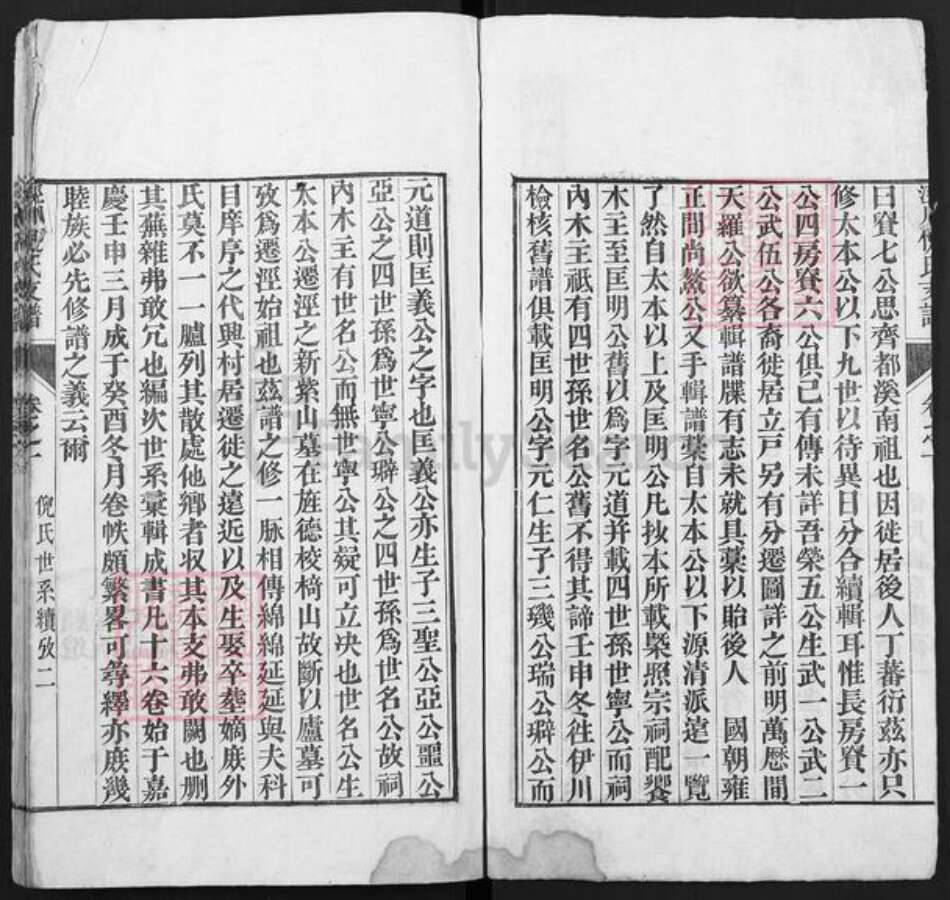 曰賚七公思齊都溪南祖也因徙居後人丁蕃衍茲亦只
修太本公以下九世以待異日分合續輯耳惟長房賚一
公四房賚六公俱已有傳未詳吾榮五公生武一公武二
公武伍公各裔徙居立戸另有分遷圖詳之前明萬歷間
天羅公欲纂輯譜牒有志未就具藁以貽後人 國朝雍
正間尚熬公又手輯譜藁自太本公以下源清派遠一覽
了然自太本以上及匡明公凡抄本所載槩照宗祠配饗
木主至匡明公舊以爲字元道并載四世孫世寧公而祠
內木主祇有四世孫世名公舊不得其諦壬申冬徃伊川
檢核舊譜俱載匡明公字元仁生子三璣公瑞公璘公而
元道則匡義公之字也匡義公亦生子三聖公亞公噩公
亞公之四世孫爲世寧公璘公之四世孫爲世名公故祠
內木主有世名公而無世寧公其疑可立决也世名公生
太本公遷涇之新紫山墓在旌德校椅山故斷以廬墓可
攷爲遷涇始祖也茲譜之修一脈相傳綿綿延延與夫科
目庠序之代興村居遷徙之遠近以及生娶卒塟嫡庶外
氏莫不一一臚列其散處他鄉者収其本支弗敢闕也刪
其蕪雜弗敢冗也編次世系彙輯成書凡十六卷始于嘉
慶壬申三月成于癸酉冬月卷帙頗繁畧可尋繹亦庶幾
睦族必先修譜之義云爾
倪氏世系續攷二